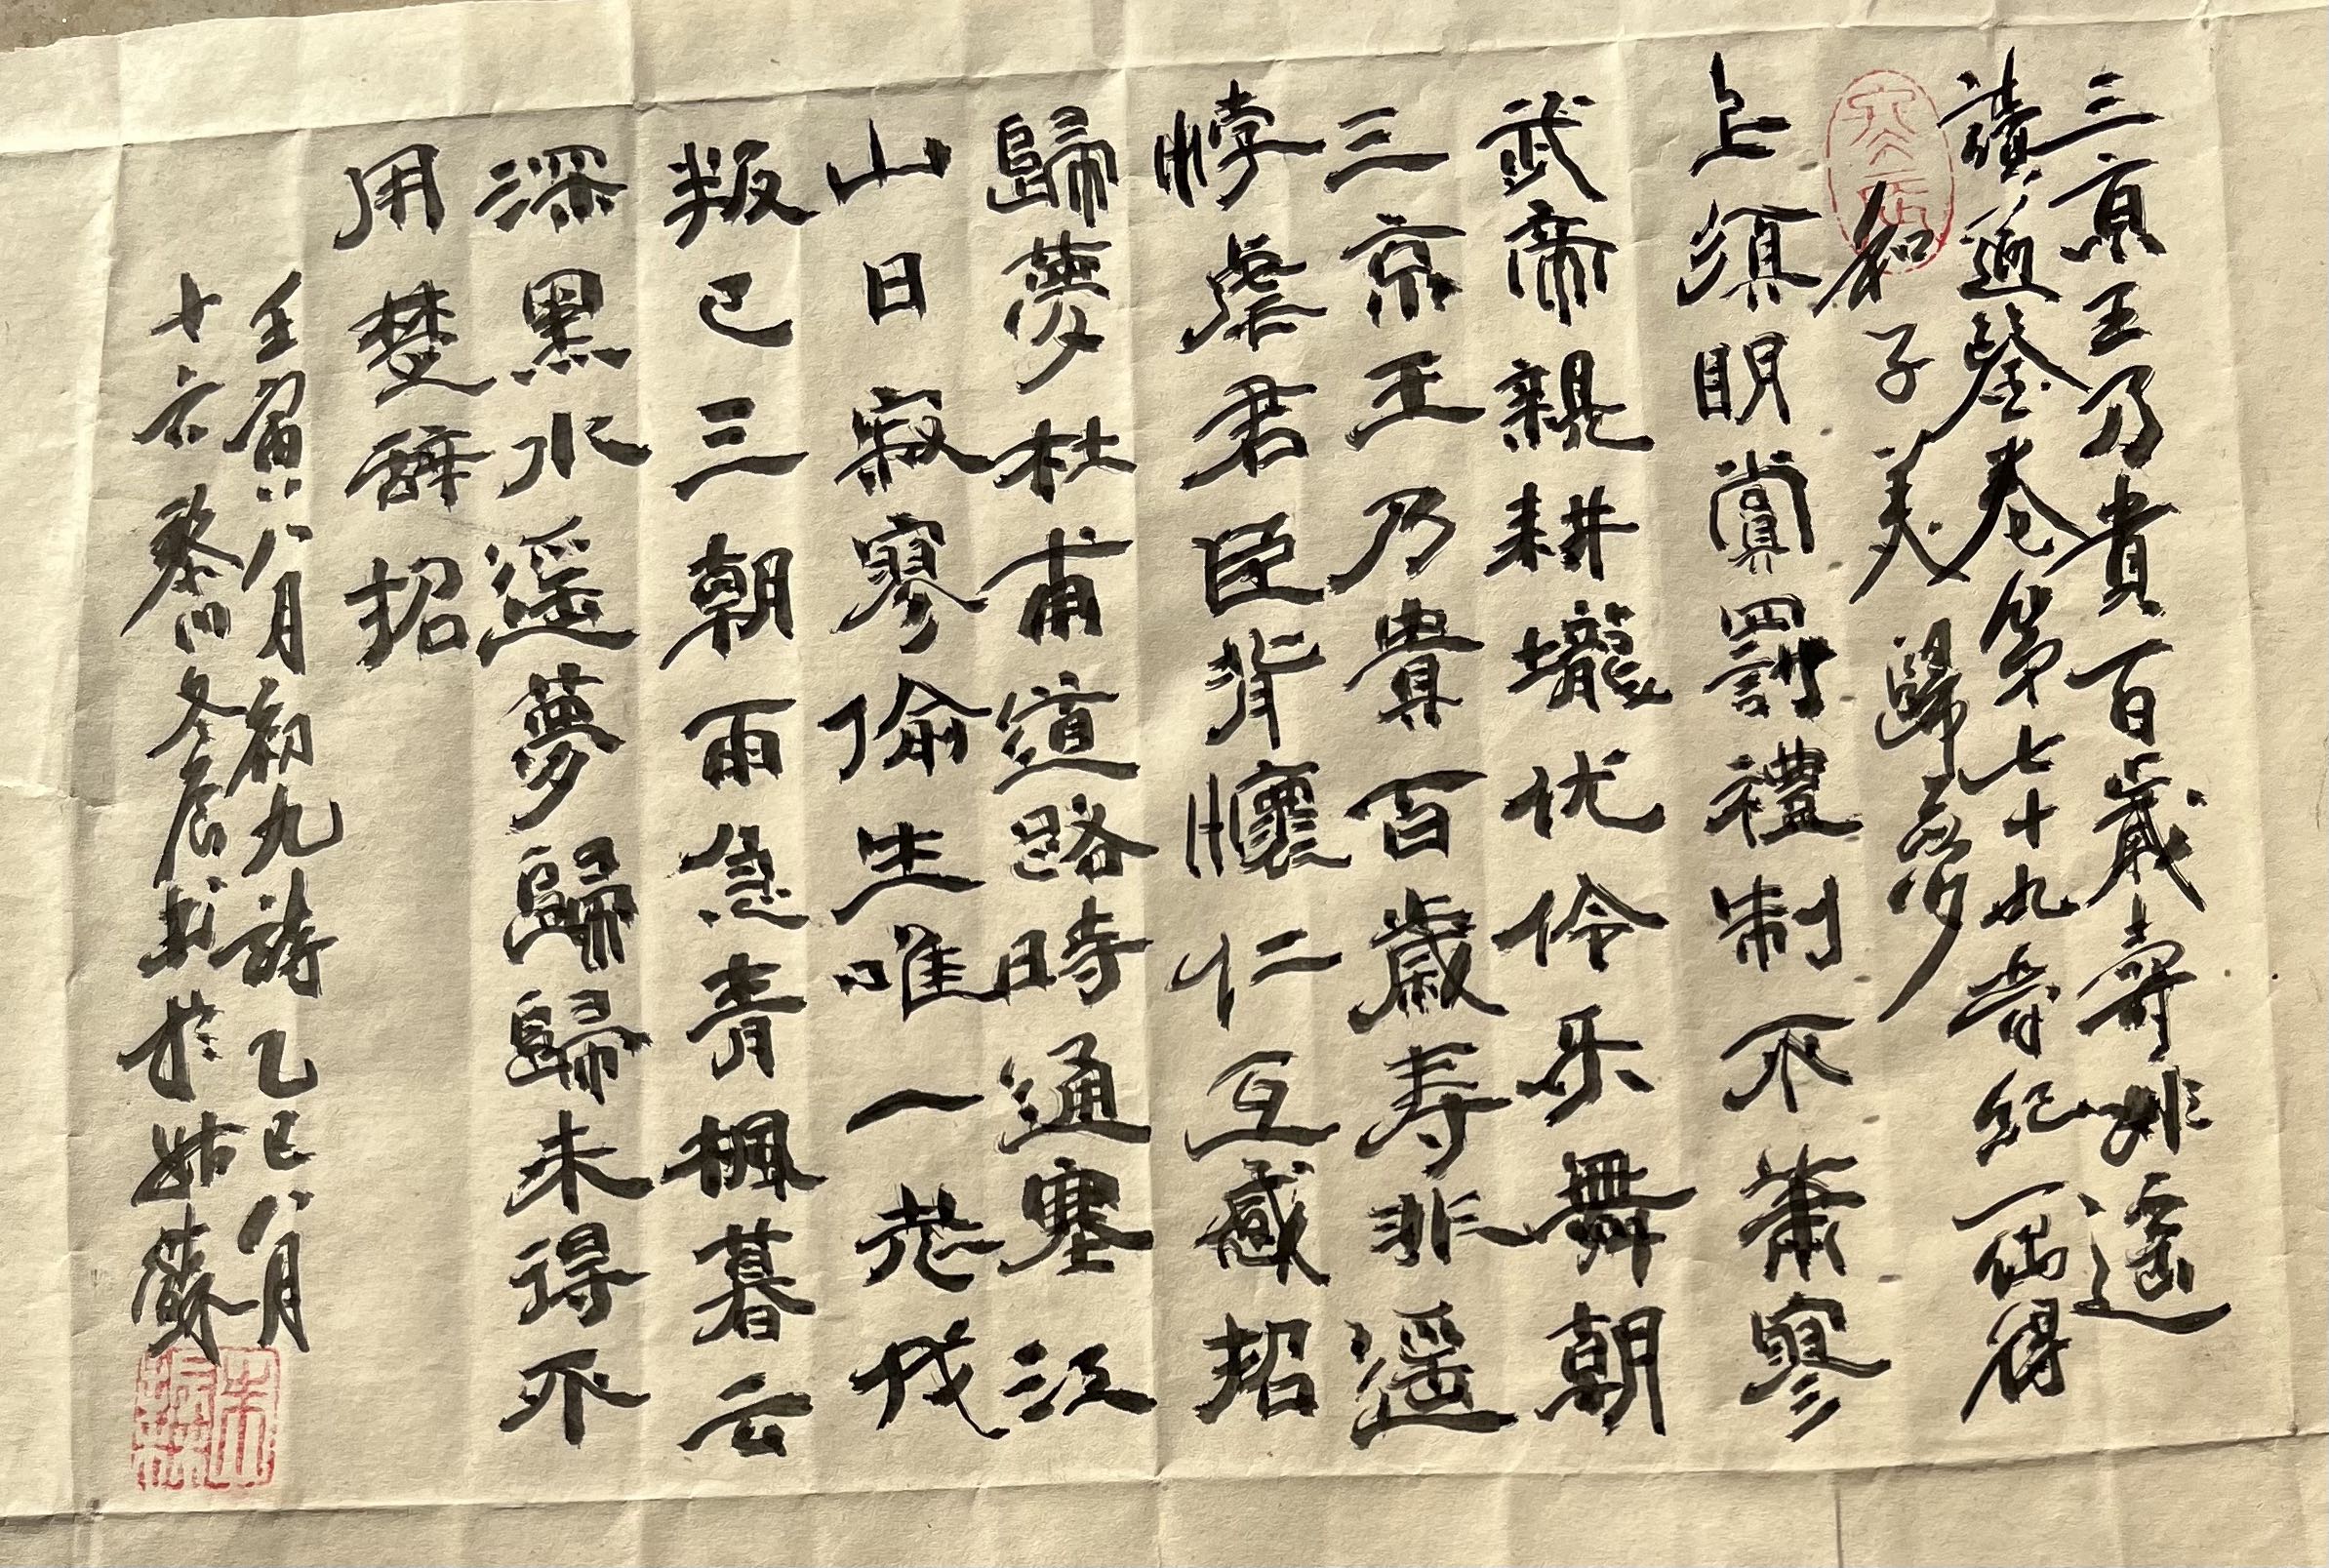 三京王乃貴百歲壽非遥
讀通鑒卷第七十九晉紀一偶得
和子美歸夢
上須明賞罰禮制不蕭寥
武帝親耕壠优伶乐舞朝
三京王乃貴百歲寿非遥
悖虐君臣背懷仁互感招
歸夢杜甫道路時通塞江
山日寂寥偷生唯一老伐
叛已三朝雨急青楓暮云
深黑水遥夢歸歸未得不
用楚辭招
壬寅八月初九詩乙巳八月
十六黎川冬辰书於姑蘇